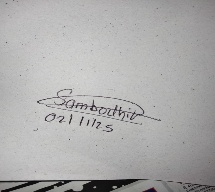 Sambodhi
02/11/25